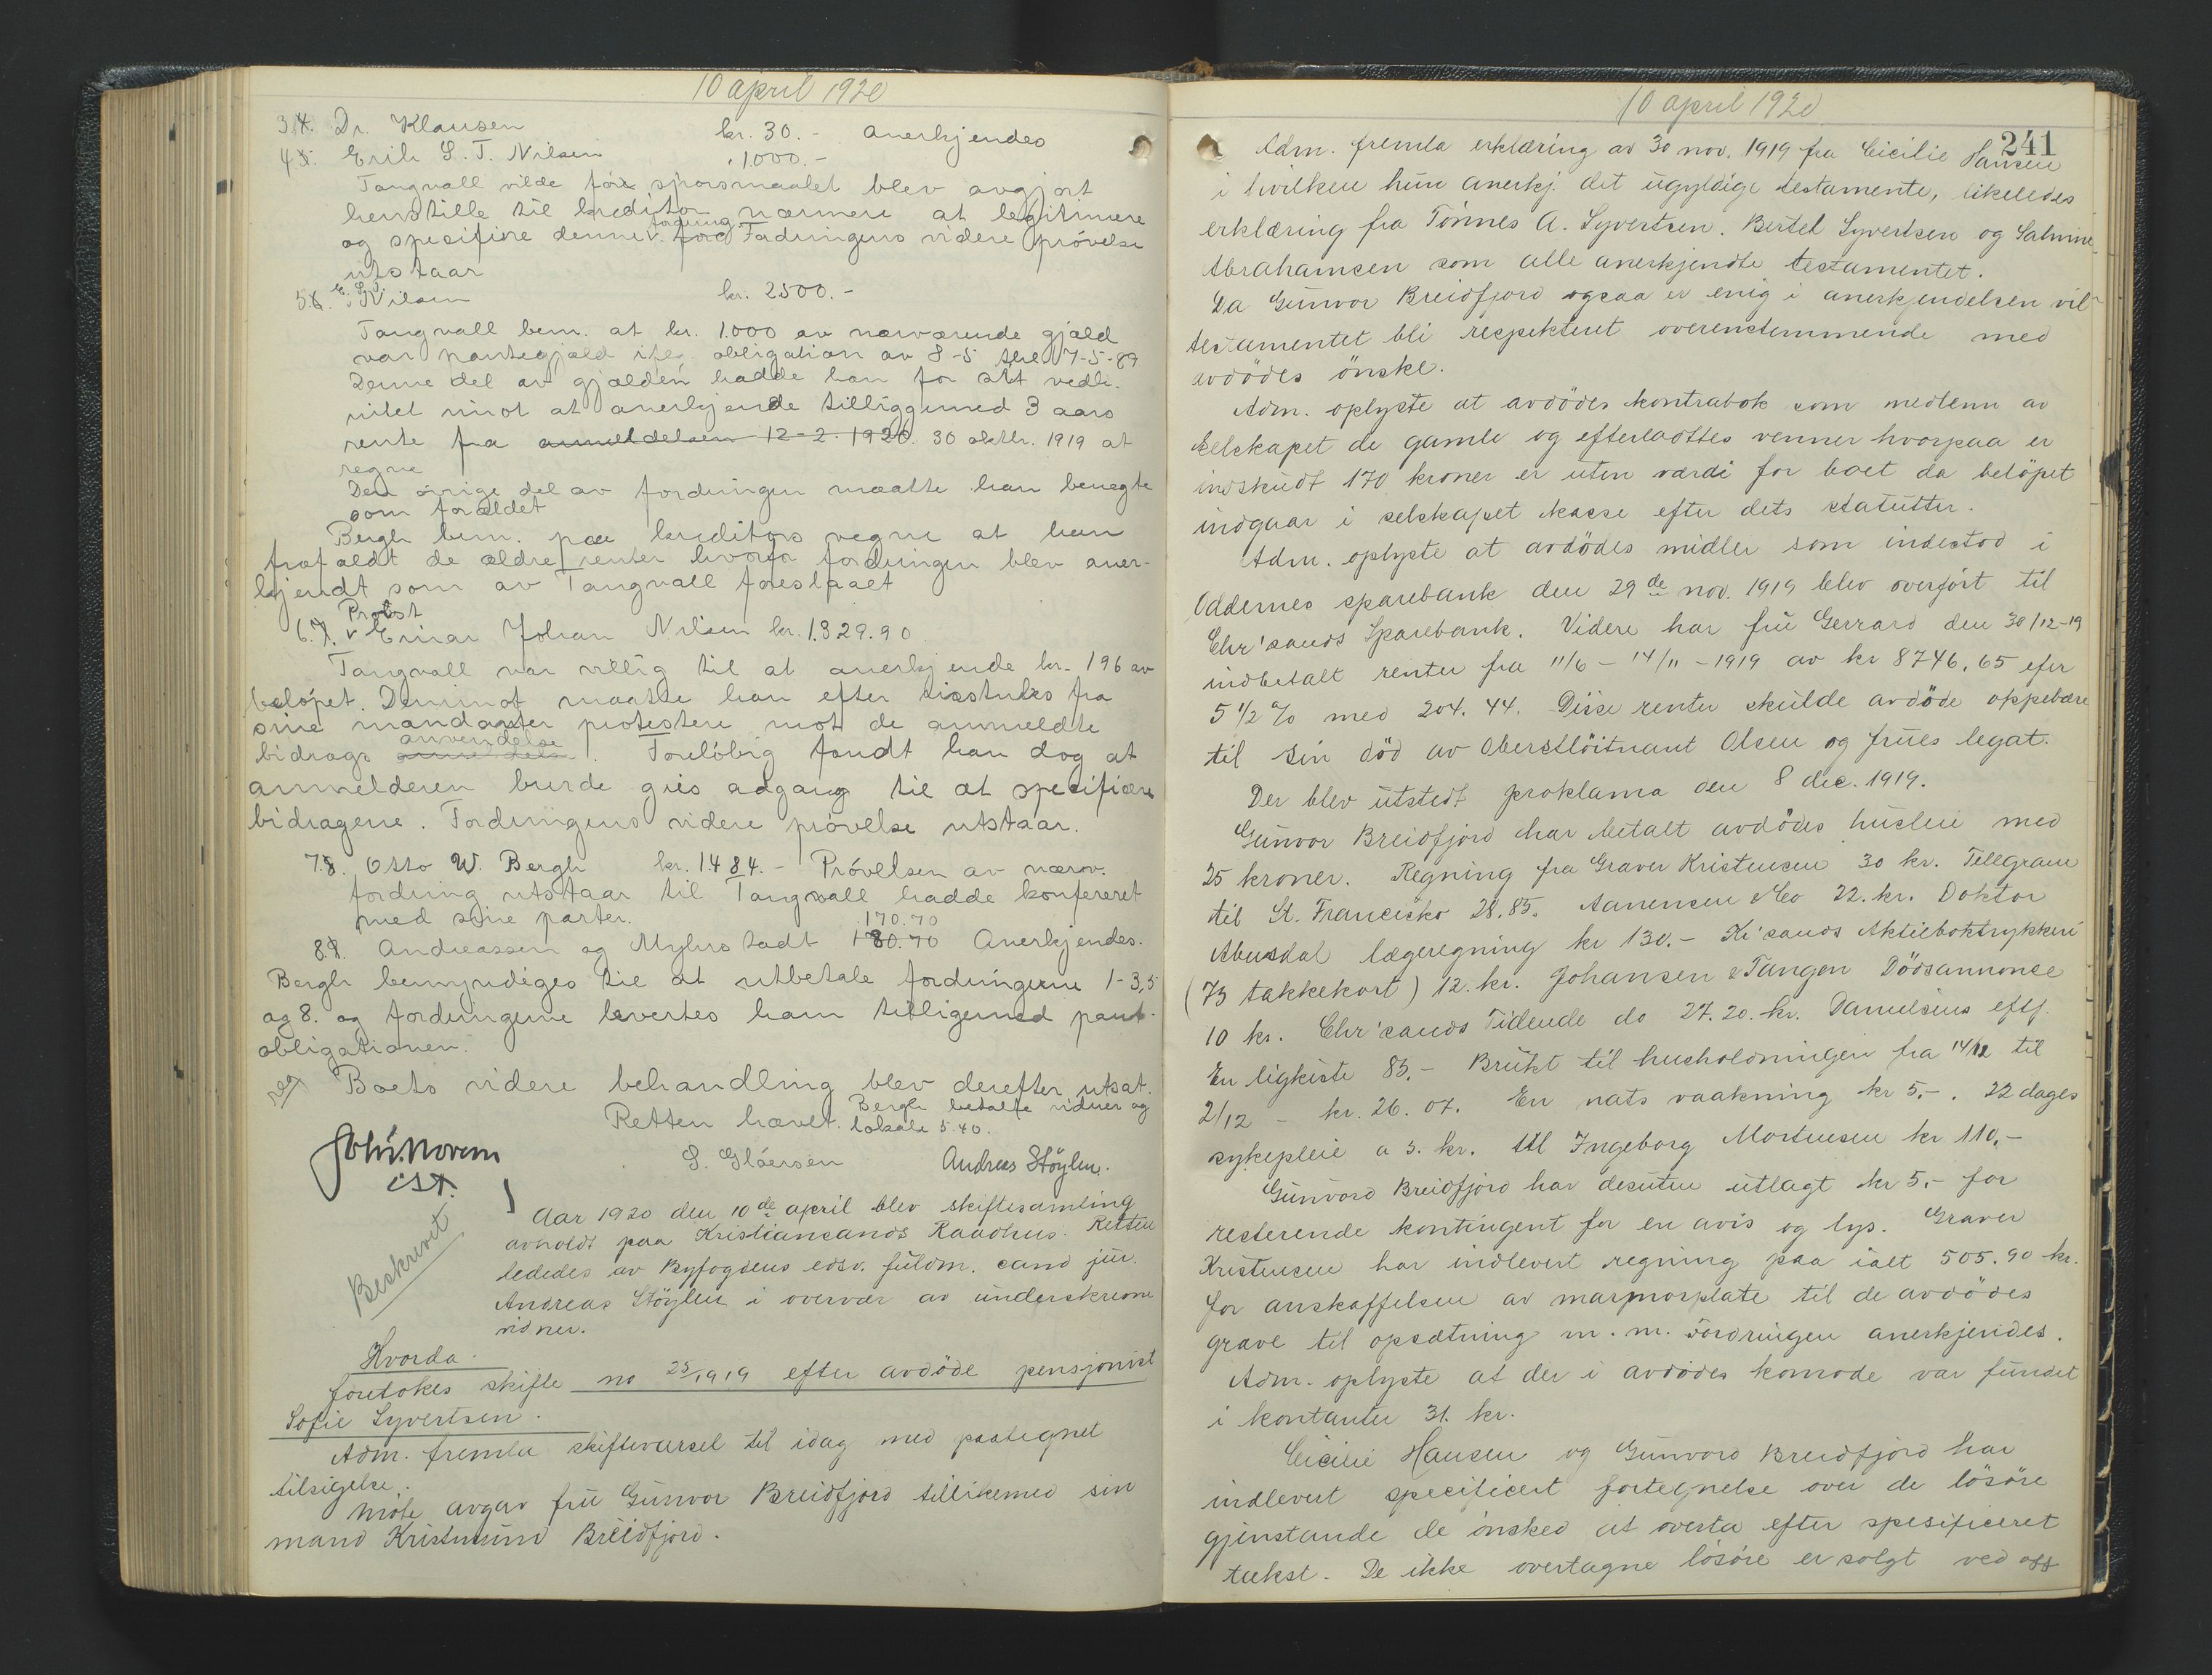 10 april 1920
3.4. Dr. Klausen kr. 30.- anerkjendes
4.5. Erik S. T. Nilsen " 1000.-
Tangvall vilde før spørsmaalet blev avgjort
henstille til kreditor nærmere at legitimere
og specifire denne v. fordring Fordringens videre prøvelse
utstaar
5.6. E. S. T. Nilsen kr. 2500.-
Tangvall bem. at kr. 1000 av nærværende gjæld
var pantegjæld iflg. obligation av 8-5 thl 7-5-89
Denne del av gjælden hadde han for sit vedk.
intet imot at anerkjende tilliggemed 3 aars
rente fra anmeldelsen 12-2-1920. 30 oktbr. 1919 at
regne
Den øvrige del av fordringen maatte han benegte
som forældet
Bergh bem. paa kreditors vegne at han
frafaldt de ældre renter hvorfor fordringen blev aner-
kjendt som av Tangvall foreslaaet
Protest
6.7. v Einar Johan Nilsen kr. 1.329.90
Tangvall var villig til at anerkjende kr. 196 av
beløpet. Derimot maatte han efter tisstuks fra
sine mandanter protestere mot de anmeldte
bidrags anvendelse. Foreløbig fandt han dog at
anmelderen burde gies adgang til at specifisere
bidragene. Fordringens videre prøvelse utstaar.
7.8. Otto W. Bergh kr. 1484.- Prøvelsen av nærv.
fordring utstaar til Tangvall hadde konfereret
med sine parter.
170.70
8.9. Andreassen og Myhrstadt 180.70 Anerkjendes.
Bergh bemyndiges til at utbetale fordringerne 1-3,5
og 8. og fordringerne levertes ham tilligemed pant-
obligationen.
reg Boets videre behandling blev derefter utsat.
Retten hævet. Bergh betalte vidner og
lokale 5.40.
S. Gløersen Andreas Stöylen.
Aar 1920 den 10de april blev skiftesamling
avholdt paa Kristiansands Raadhus. Retten
lededes av Byfogdens edsv. fuldm. cand jur.
Andreas Stöylen i overvær av underskrevne
vidner.
Beskrevet
Hvorda.
foretokes skifte no 25/1919 efter avdöde pensjonist
Sofie Syvertsen.
Adm. fremla skiftevarsel til idag med paategnet
tilsigelse.
Möte avgav fru Gunvor Breidfjord tillikemed sin
mand Kristmund Breidfjord.
10 april 1920
241
Adm. fremla erklæring av 30 nov. 1919 fra Cicilie Hansen
i hvilken hun anerkj. det ugyldige testamente, likeledes
erklæring fra Tönnes A. Syvertsen. Bertel Syvertsen og Salmine
Abrahamsen som alle anerkjendte testamentet.
Da Gunvor Breidfjord ogsaa er enig i anerkjendelsen vil
testamentet bli respekteret overenstemmende med
avdödes önske.
Adm. oplyste at avdödes kontrabok som medlem av
selskapet de gamle og efterladttes venner hvorpaa er
indskudt 170 kroner er uten værdi for boet da belöpet
indgaar i selskapet kasse efter dets statutter.
Adm. oplyste at avdödes midler som indestod i
Oddernes sparebank den 29de nov. 1919 blev overfört til
Chr'sands Sparebank. Videre har fru Gerrard den 30/12-19
indbetalt renter fra 11/6 - 14/11 - 1919 av kr 8746.65 efer
5 1/2 % med 204.44. Disse renter skulde avdöde oppebære
til sin död av Oberstlöitnant Olsen og frues legat.
Der blev utstedt proklama den 8 dec. 1919.
Gunvor Breidfjord har betalt avdödes husleie med
25 kroner. Regning fra Graver Kristensen 30 kr. Tellgram
til St. Francisko 28.85. Aanensen & Co 22. kr. Doktor
Abusdal lægeregning kr 130.- Kr'sands Aktieboktrykkeri
(75 takkekort) 12. kr. Johansen & Tangen Dödsannonse
10 kr. Chr'sands Tidende do 27.20. kr. Danielsens eftf.
En ligkiste 85.- Brukt til husholdningen fra 14/12 til
2/12 - kr. 26.07. En nats vaakning kr 5.-. 22 dages
sykepleie a 5. kr. til Ingeborg Mortensen kr 110.-
Gunvord Breidfjord har desuten utlagt kr 5.- for
resterende kontingent for en avis og lys. Graver
Kristensen har indlevert regning paa ialt 505.90 kr.
for anskaffelsen av marmorplate til de avdödes
grave til opsætning m.m. Fordringen anerkjendes.
Adm. oplyste at der i avdödes komode var fundet
i kontanter 31. kr.
Cicilie Hansen og Gunvord Breidfjord har
indlevert specificert fortegnelse over de lösöre
gjenstande de önsked at overta efter spesificeret
takst. De ikke overtagne lösöre er solgt ved off